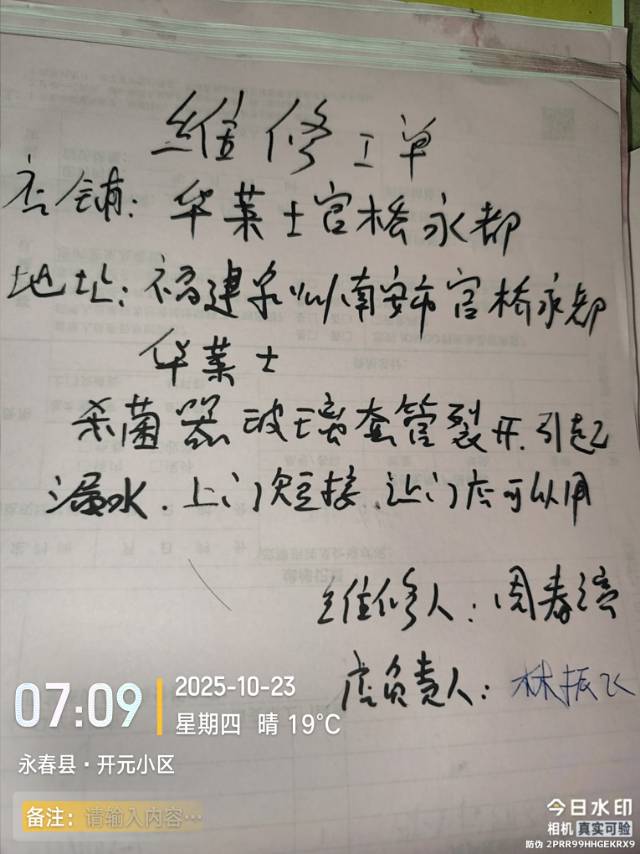 维修工单
店铺：华莱士官桥永都
地址：福建泉州南安市官桥永都
华莱士
杀菌器玻璃套管裂开.引起
漏水.上门短接.让门店可以用
维修人：周春
店负责人：林振飞
07:09
2025-10-23
星期四 晴 19°C
永春县·开元小区
备注：请输入内容…
今日水印
相机 真实可验
防伪 2PRR99HHGEKRX9